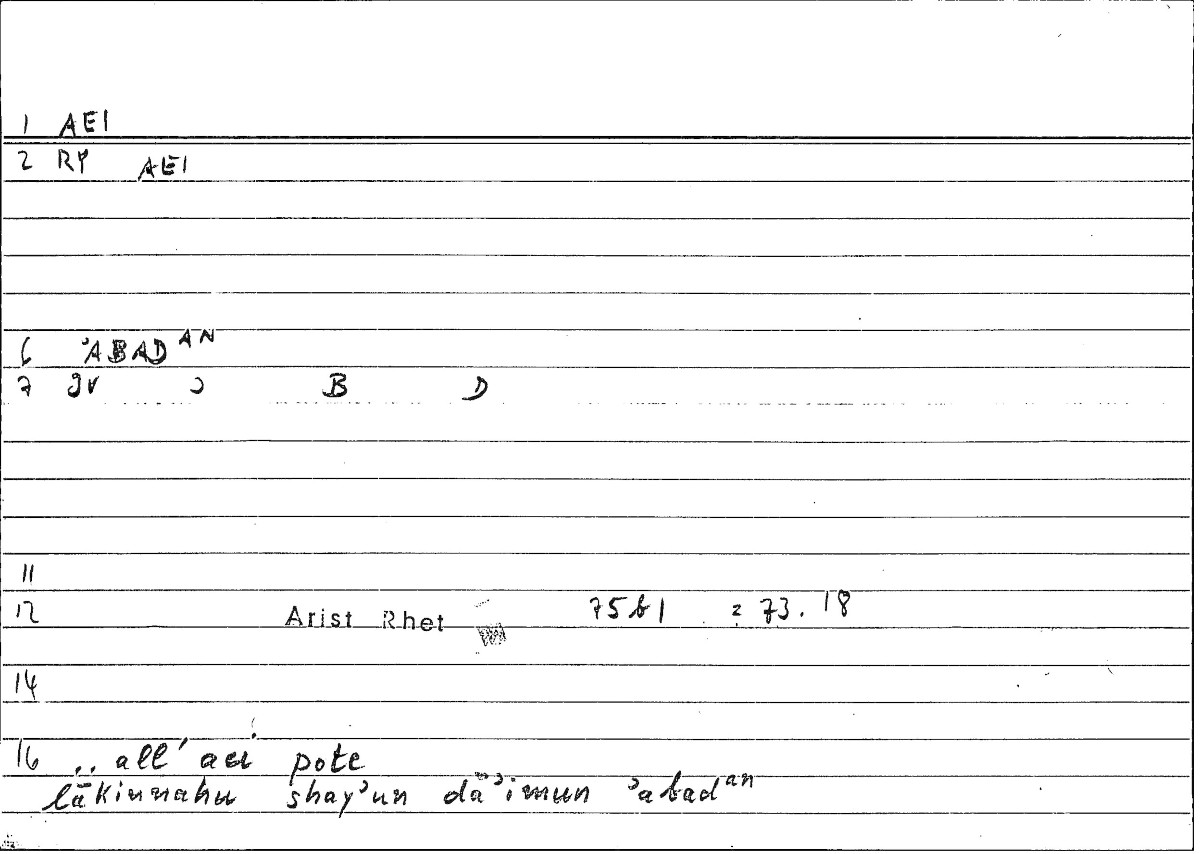 1 AEI
2 RY AEI
6 ʾABAD AN
7 gv ʾ B D
11
12 Arist Rhet 75b1 = 73.18
14
16 .. all' aei pote
lākinnahu shayʾun dāʾimun ʾabadan